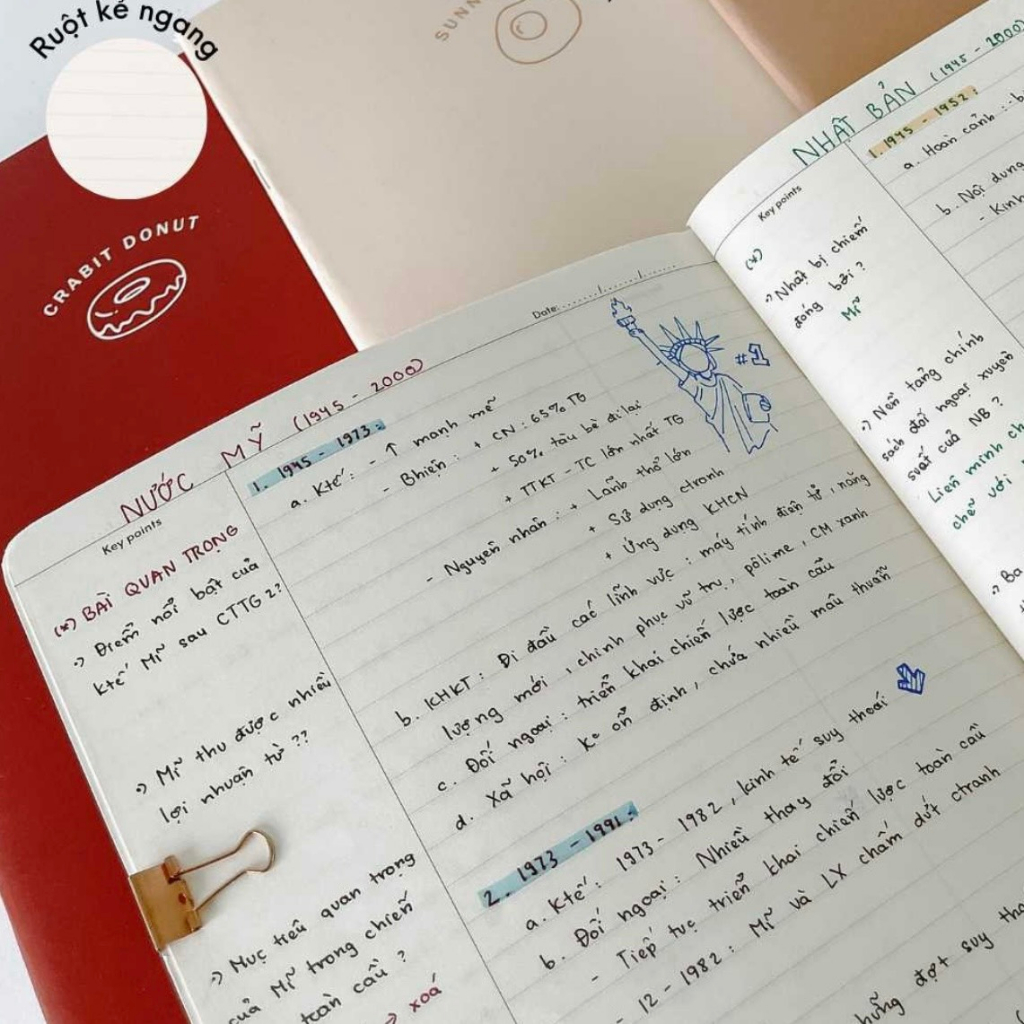 Ruột kẻ ngang
CRABIT DONUT
SUNN
Date:......./......./.......
NƯỚC MỸ (1945 - 2000)
Key points
(*) BÀI QUAN TRỌNG
-> Điểm nổi bật của
ktế Mĩ sau CTTG 2?
-> Mĩ thu được nhiều
lợi nhuận từ ??
-> Mục tiêu quan trọng
của Mĩ trong chiến
toàn cầu ?
-> xoá
#1
1. 1945 - 1973:
a. Ktế: - ↑ mạnh mẽ
- Bhiện: + CN: 65% TG
+ 50% tàu bè đi lại
+ TTKT - TC lớn nhất TG
- Nguyên nhân: + Lãnh thổ lớn
+ Sử dụng ctranh
+ Ứng dụng KHCN
b. KHKT: Đi đầu các lĩnh vực: máy tính điện tử, năng
lượng mới, chinh phục vũ trụ, pôlime, CM xanh
c. Đối ngoại: triển khai chiến lược toàn cầu
d. Xã hội: ko ổn định, chứa nhiều mâu thuẫn
2. 1973 - 1991:
a. Ktế: 1973 - 1982, kinh tế suy thoái
b. Đối ngoại: Nhiều thay đổi
- Tiếp tục triển khai chiến lược toàn cầu
- 12 - 1982: Mĩ và LX chấm dứt ctranh
đợt suy
NHẬT BẢN (1945 - 2000)
Key points
(*)
-> Nhật bị chiếm
đóng bởi ?
Mĩ
-> Nền tảng chính
sách đối ngoại xuyên
suốt của NB ?
Liên minh ch
chẽ với
-> Ba
1. 1945 - 1952:
a. Hoàn cảnh: - b
b. Nội dung
- Kinh